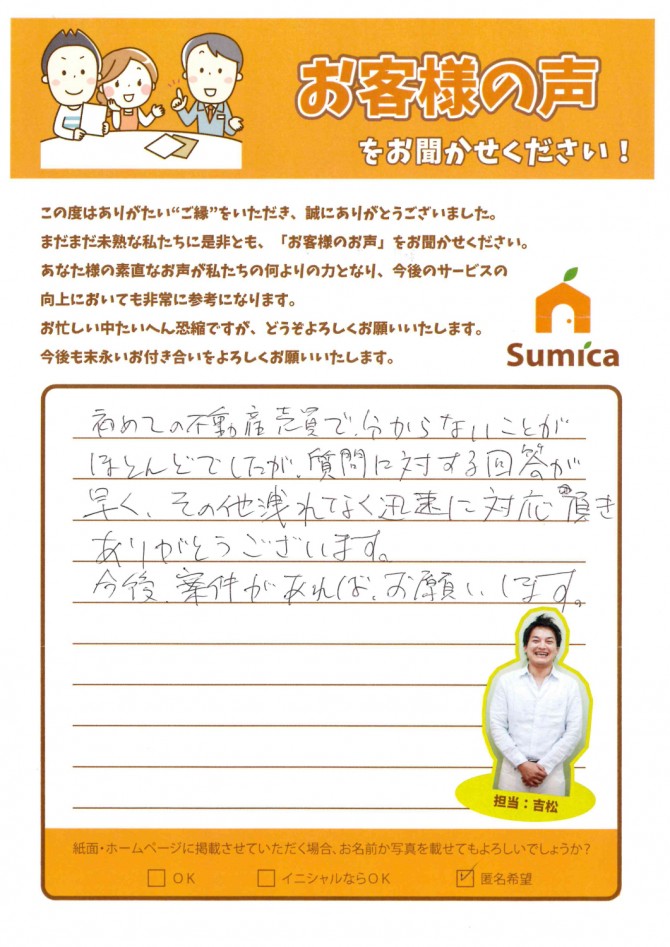 お客様の声
をお聞かせください！
この度はありがたい“ご縁”をいただき、誠にありがとうございました。
まだまだ未熟な私たちに是非とも、「お客様のお声」をお聞かせください。
あなた様の素直なお声が私たちの何よりの力となり、今後のサービスの
向上においても非常に参考になります。
お忙しい中たいへん恐縮ですが、どうぞよろしくお願いいたします。
今後も末永いお付き合いをよろしくお願いいたします。
Sumica
初めての不動産売買で、分からないことが
ほとんどでしたが、質問に対する回答が
早く、その他洩れなく迅速に対応頂き
ありがとうございます。
今後、案件があれば、お願いします。
担当：吉松
紙面・ホームページに掲載させていただく場合、お名前か写真を載せてもよろしいでしょうか？
OK イニシャルならOK 匿名希望